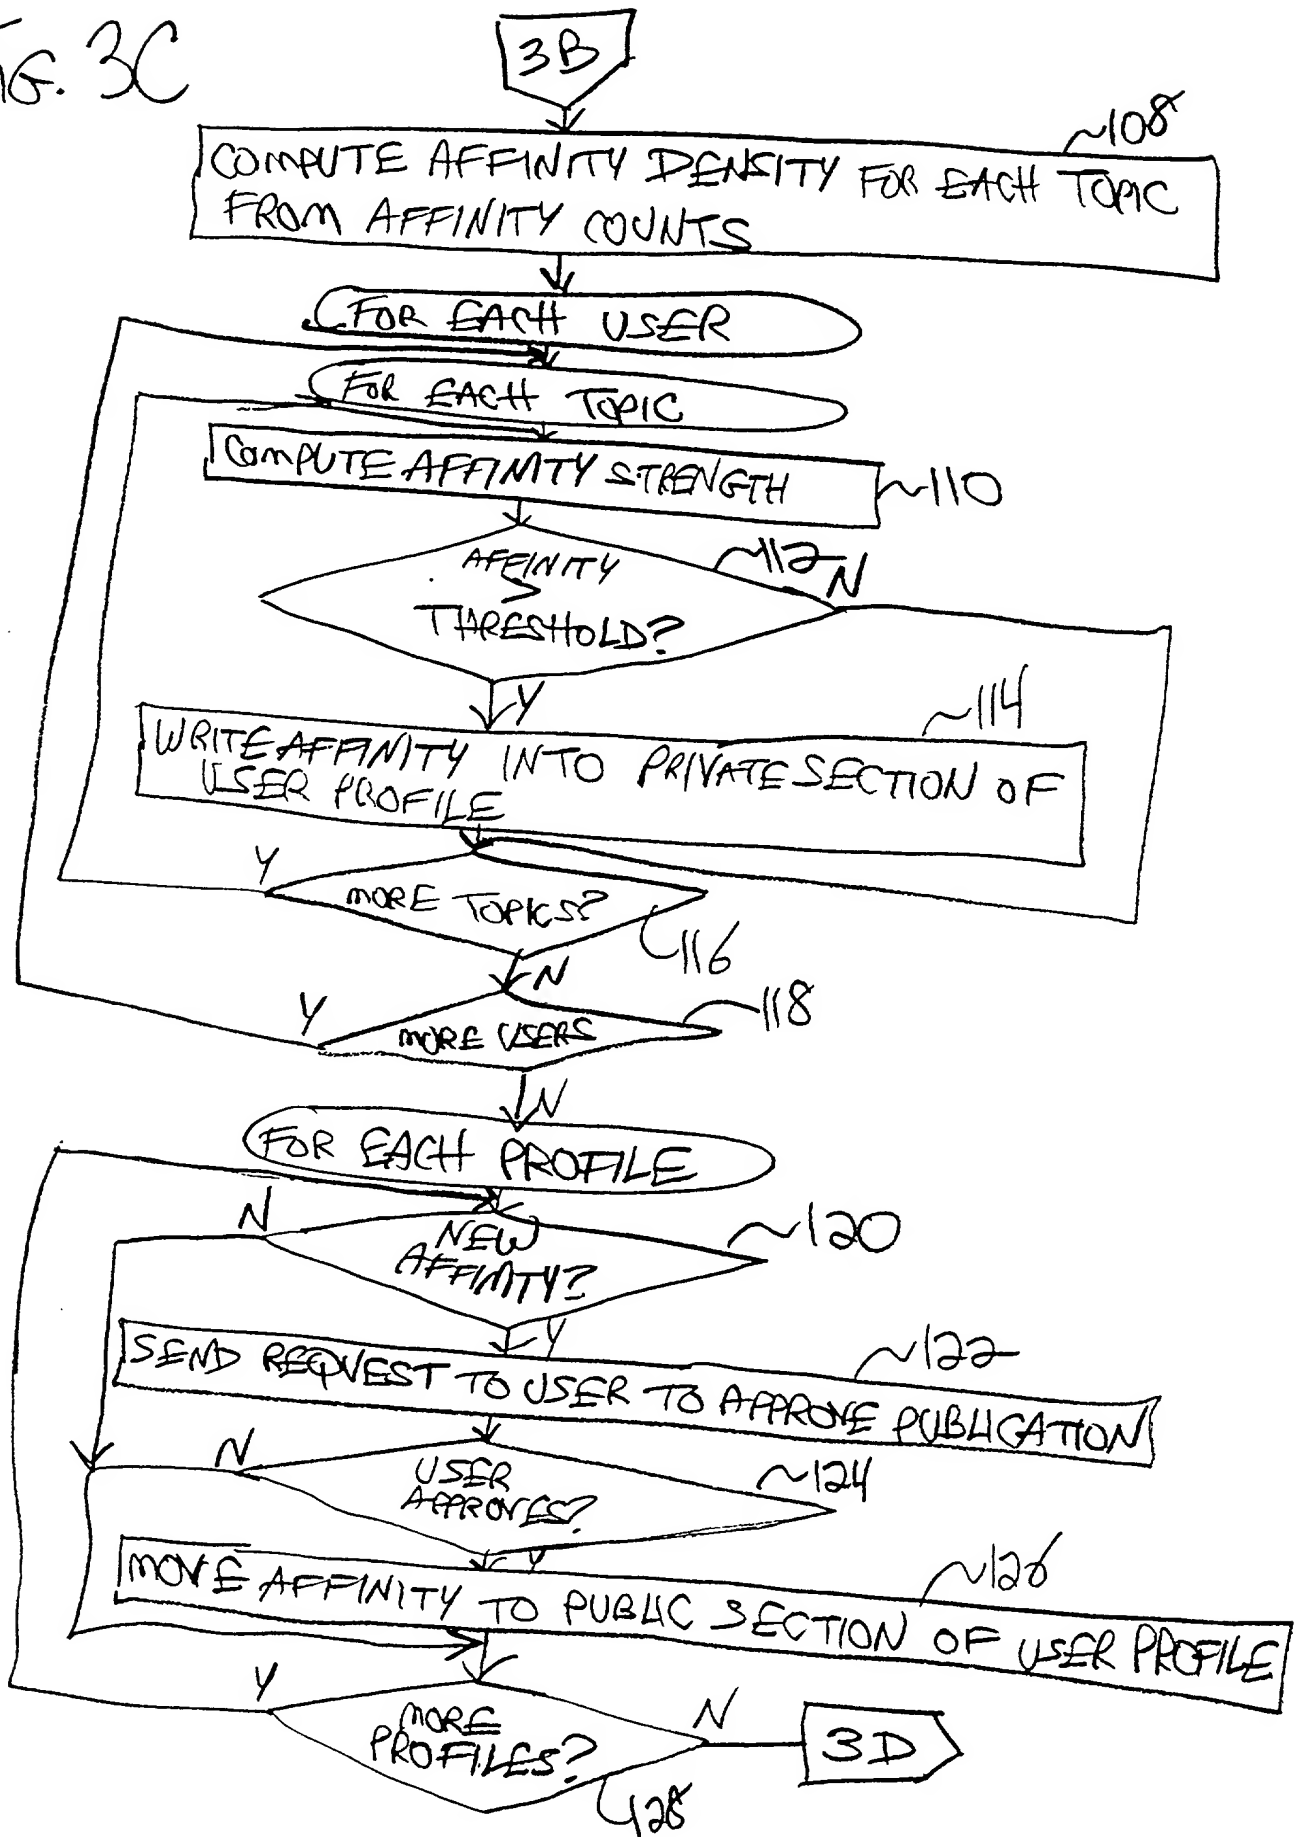 FIG. 3C
3B
~108
COMPUTE AFFINITY DENSITY FOR EACH TOPIC
FROM AFFINITY COUNTS
FOR EACH USER
FOR EACH TOPIC
COMPUTE AFFINITY STRENGTH
~110
~112
N
AFFINITY
>
THRESHOLD?
Y
~114
WRITE AFFINITY INTO PRIVATE SECTION OF
USER PROFILE
Y
MORE TOPICS?
116
N
Y
MORE USERS
118
N
FOR EACH PROFILE
N
NEW
AFFINITY?
~120
Y
~122
SEND REQUEST TO USER TO APPROVE PUBLICATION
N
USER
APPROVES?
~124
Y
~126
MOVE AFFINITY TO PUBLIC SECTION OF USER PROFILE
Y
MORE
PROFILES?
N
3D
128